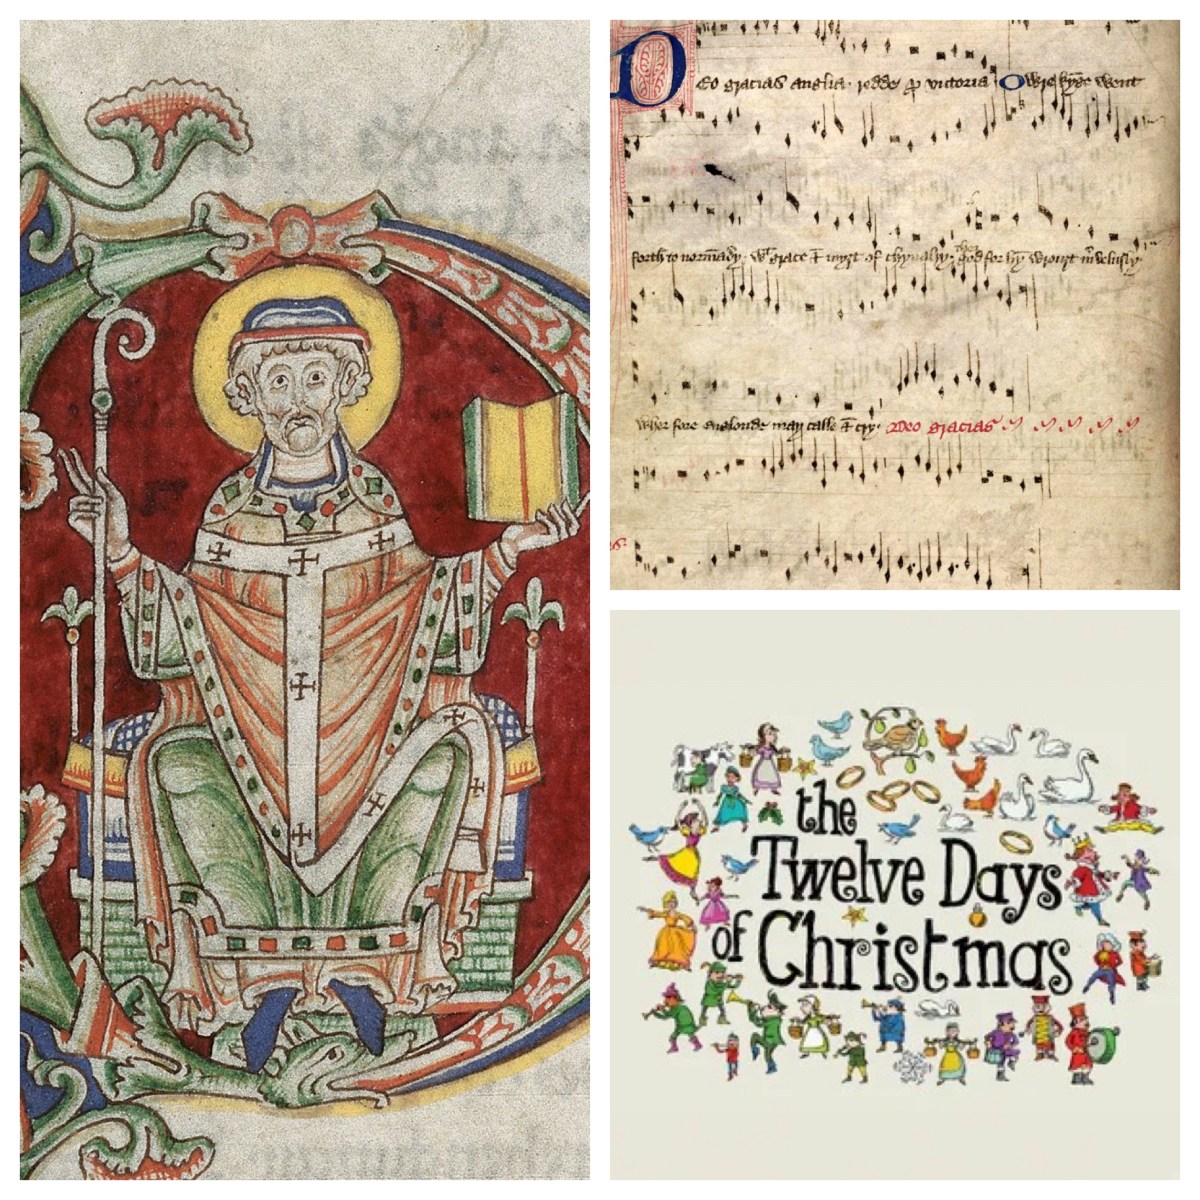 Deo gracias anglia redde p victoria Owre kynge went
forth to normady wt grace & myȝt of chyvalry
ther god for hym wrouȝt mvelusly
Wher fore englonde may calle & cry Deo gracias
the
Twelve Days
of Christmas